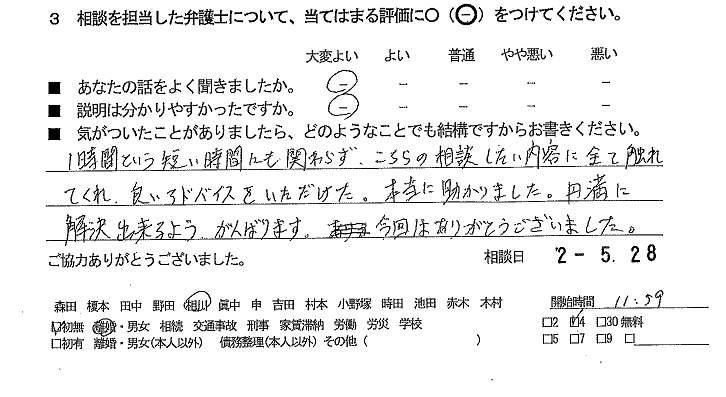 3 相談を担当した弁護士について、当てはまる評価に〇（⊖）をつけてください。
大変よい よい 普通 やや悪い 悪い
■ あなたの話をよく聞きましたか。 － － － － －
■ 説明は分かりやすかったですか。 － － － － －
■ 気がついたことがありましたら、どのようなことでも結構ですからお書きください。
1時間という短い時間にも関わらず、こちらの相談したい内容に全て触れ
てくれ、良いアドバイスをいただけた。本当に助かりました。円満に
解決出来るよう、がんばります。今回はありがとうございました。
ご協力ありがとうございました。 相談日 '2－5.28
森田 榎本 田中 野田 相川 眞中 申 吉田 村本 小野塚 時田 池田 赤木 木村 開始時間 11:59
☑初無 離婚・男女 相続 交通事故 刑事 家賃滞納 労働 労災 学校 □2 ☑4 □30無料
□初有 離婚・男女(本人以外) 債務整理(本人以外) その他（ ） □5 □7 □9 □